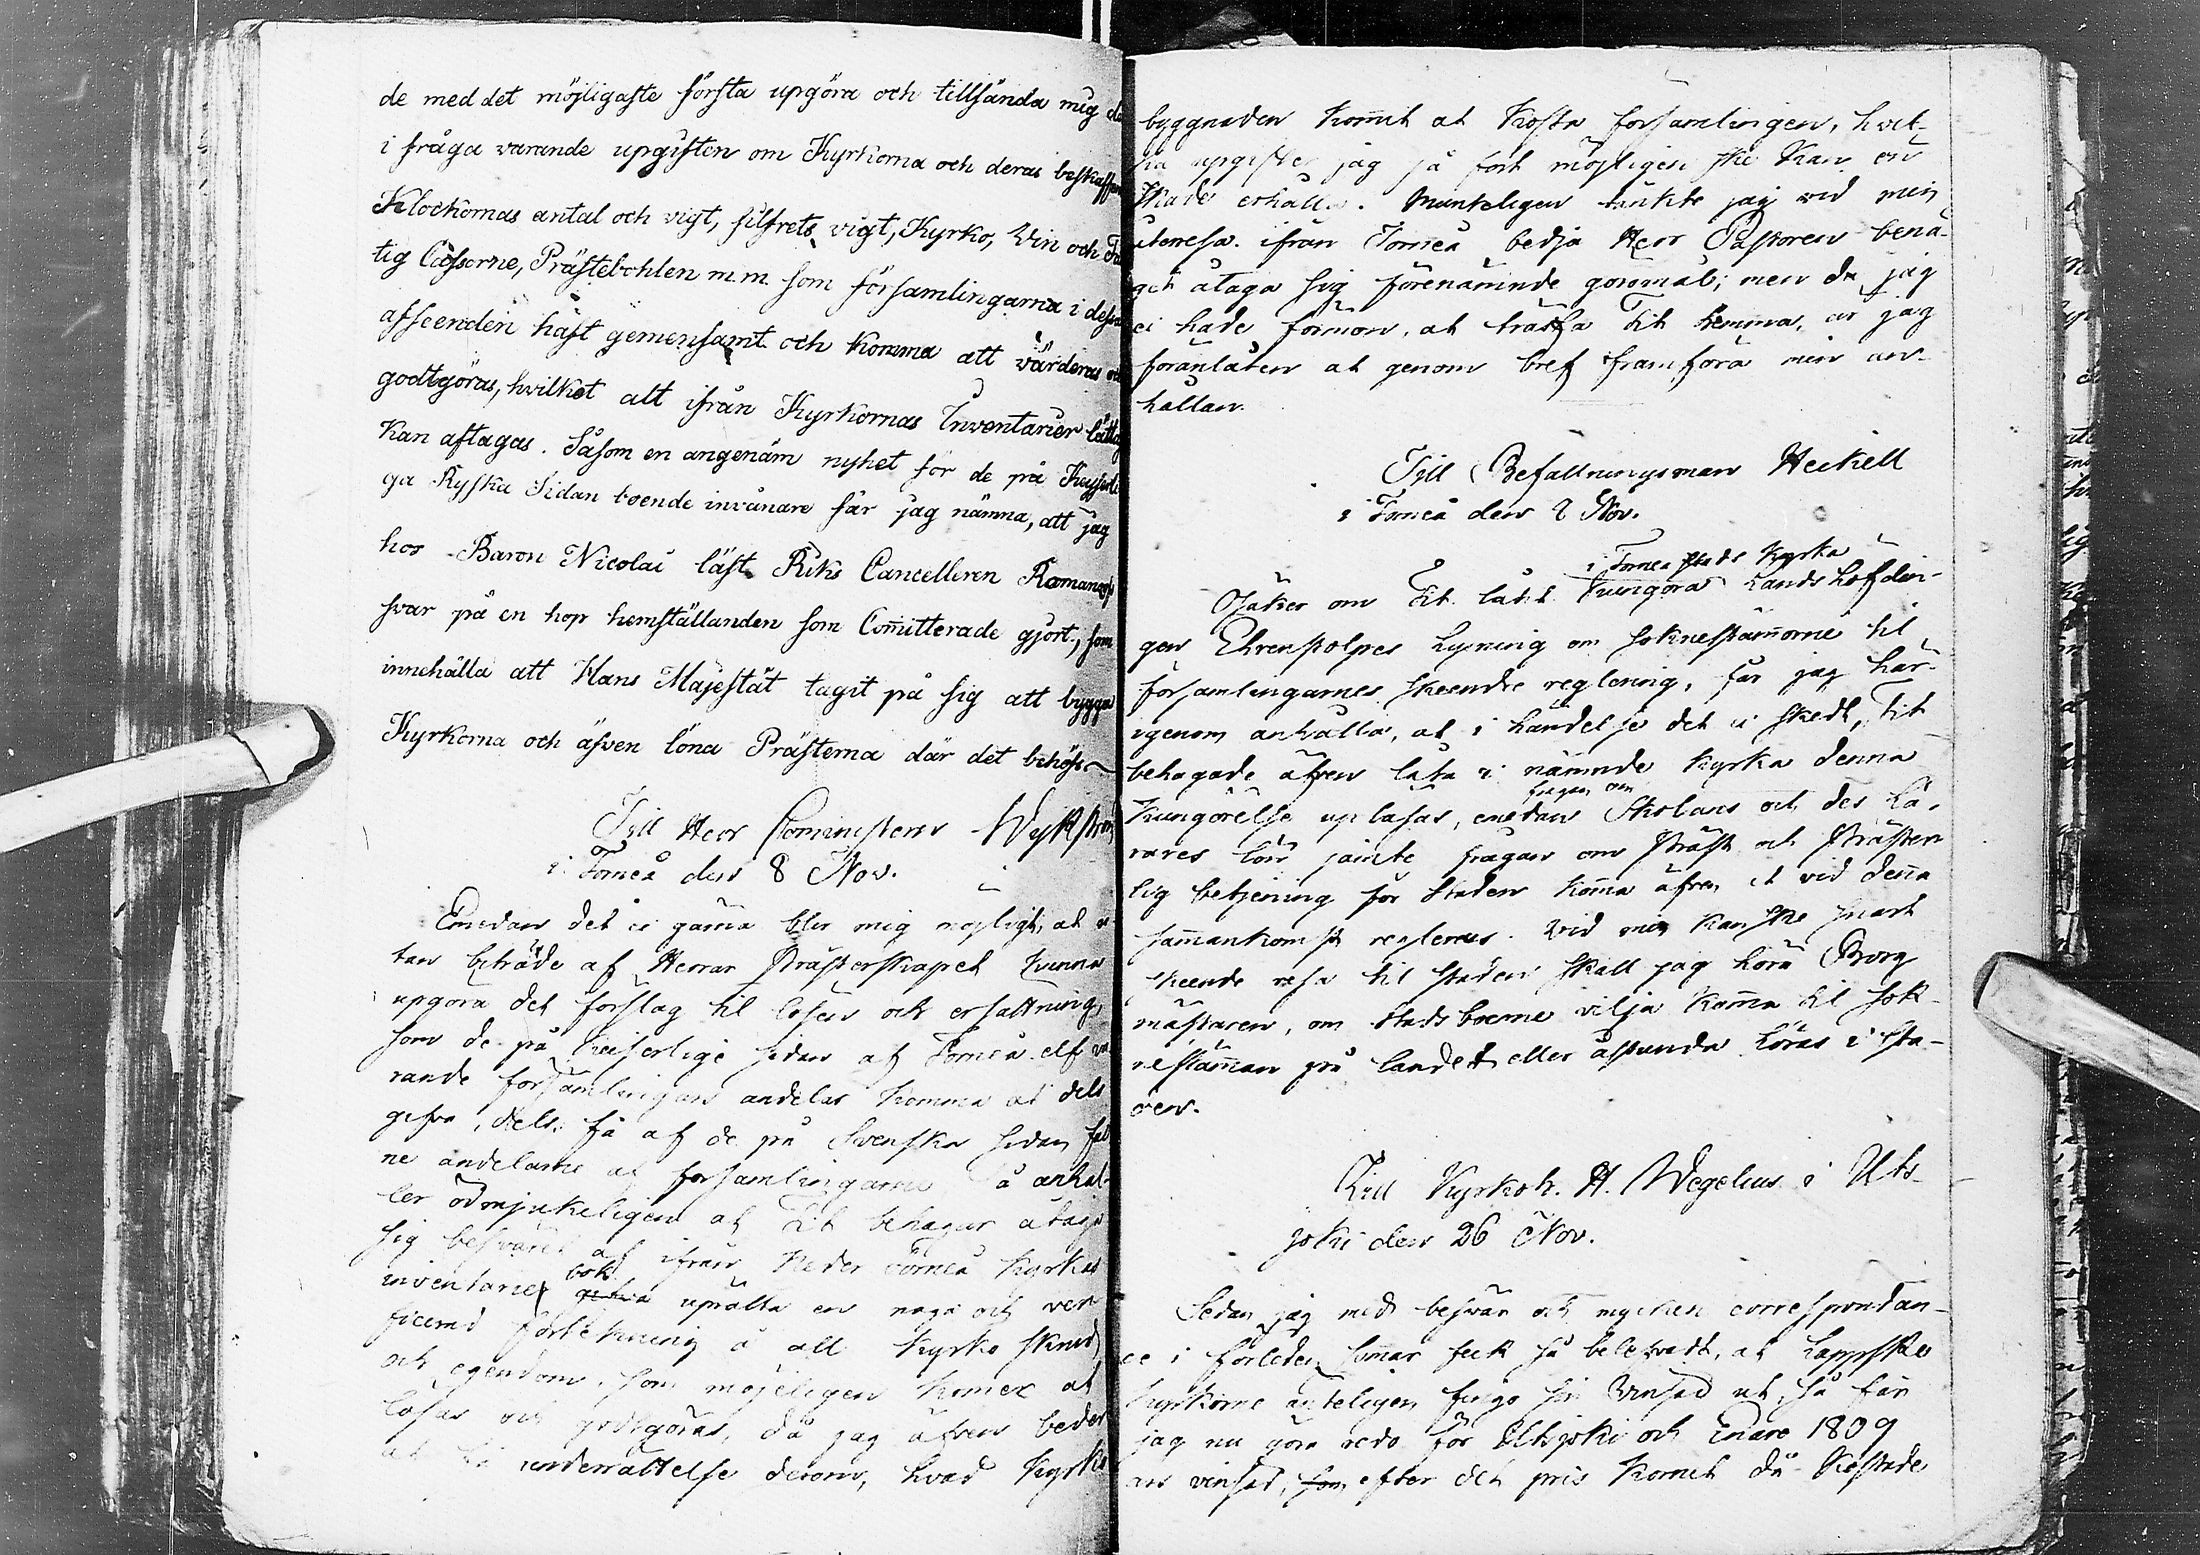 de med det möjligaste första upgöra och tillsända mig de
i fråga varande upgiften om Kyrkorna och deras beskaffen
Klockornas antal och vigt, silfrets vigt, Kyrko, Vin och Fat
tig Cassorne, Prästebohlen m.m. som församlingarna i dessa
afseenden häft gemensamt och komma att värderas och
godtgöras, hvilket alt ifrån Kyrkornas Inventarier lättlig
kan aftagas. Såsom en angenäm nyhet för de på Keyserli
ga Ryska Sidan boende invånare får jag nämna, att jag
hos Baron Nicolai läst Riks Cancelleren Romanzofs
svar på en hop hemställanden som Com̄itterade gjort, som
innehålla att Hans Majestät tagit på sig att bygga
Kyrkorna och äfven löna Prästerna där det behöfs
Till Herr Comministern Wykström
i Torneå den 8 Nov.
Emedan det ei gärna blir mig möjligt, at u-
tan biträde af Herrar Prästerskapet kunna
upgöra det förslag til lösen och ersättning,
som de på Keiserlige sidan af Torneå elf va
rande församlingars andelar komma at dels
gifva, dels få af de på Svenska sidan
ne andelarne af församlingarne så anhål-
ler ödmjukeligen at Tit behagar åtaga
sig besväret at ifrån Neder Torneå Kyrkas
inventarie bok upsätta en noga och veri
ficerad förtekning å all Kyrko skrud
och egendom, som möjeligen kommer at
lösas och godtgöras, då jag äfven beder
at få underrättelse derom, hvad Kyrko
byggnaden kom̄it at kosta församlingen, hvil-
ka upgifter jag så fort möjligen ske kan ön
skade erhålla. Munteligen tänkte jag vid min
uteresa ifrån Torneå bedja Herr Pastoren benä-
git åtaga sig förenämnde göromål; men da jag
ei hade förmon, at träffa Tit hemma, är jag
föranlåten at genom bref framföra min an-
hållan.
Till Befallningsman Heikell
i Torneå den 8 Nov.
i Torneå stads Kyrka
Osäker om Tit. låtit kungöra Landshöfdin-
gen Ehrenstolpes Lysning om soknestäm̄orne til
församlingarnes skeende reglering, får jag här-
igenom anhålla, at i händelse det ei skedt, Tit
behagade äfven låta i nämnde kyrka denna
frågan om
kungörelse upläsas, emedan Skolans och des Lä-
rares lön jämte frågan om Präst och Präster-
lig betjening för staden kom̄a äfven at vid denna
sam̄ankomst regleras. Vid min kanske snart
skeende resa til staden skall jag höra Borg
mästaren, om Stadsboerne vilja kom̄a til sok-
nestäm̄an på landet eller åstunda höras i sta-
den.
Till Kyrkoh. H. Wegelius i Uts-
joki den 26 Nov.
Sedan jag med besvär och mycken correspondan-
ce i förleden som̄ar feck så belekvadt, at Lappske
kyrkorne änteligen fingo sin vinsäd ut, så får
jag nu göra redo för Utsjoki och Enare 1809
års vinsäd, som efter det pris kornet då kostade